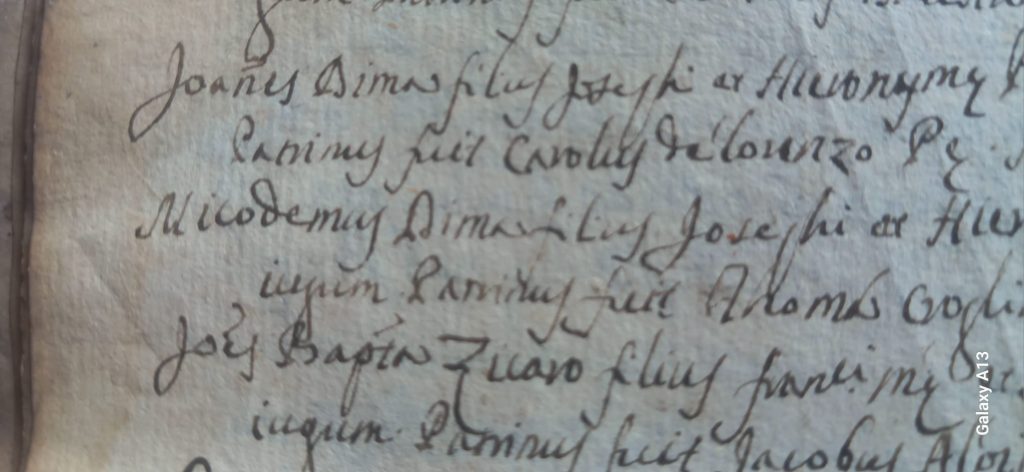 Joañes Dima filius Josephi et Hieronymę
Patrinus fuit Carolus de Lorenzo Pę
Nicodemus Dima filius Josephi et Hier
iugum Patrinus fuit Thomas
Joẽs Bapta Zicaro filius
iugum Patrinus fuit Jacobus
Galaxy A13